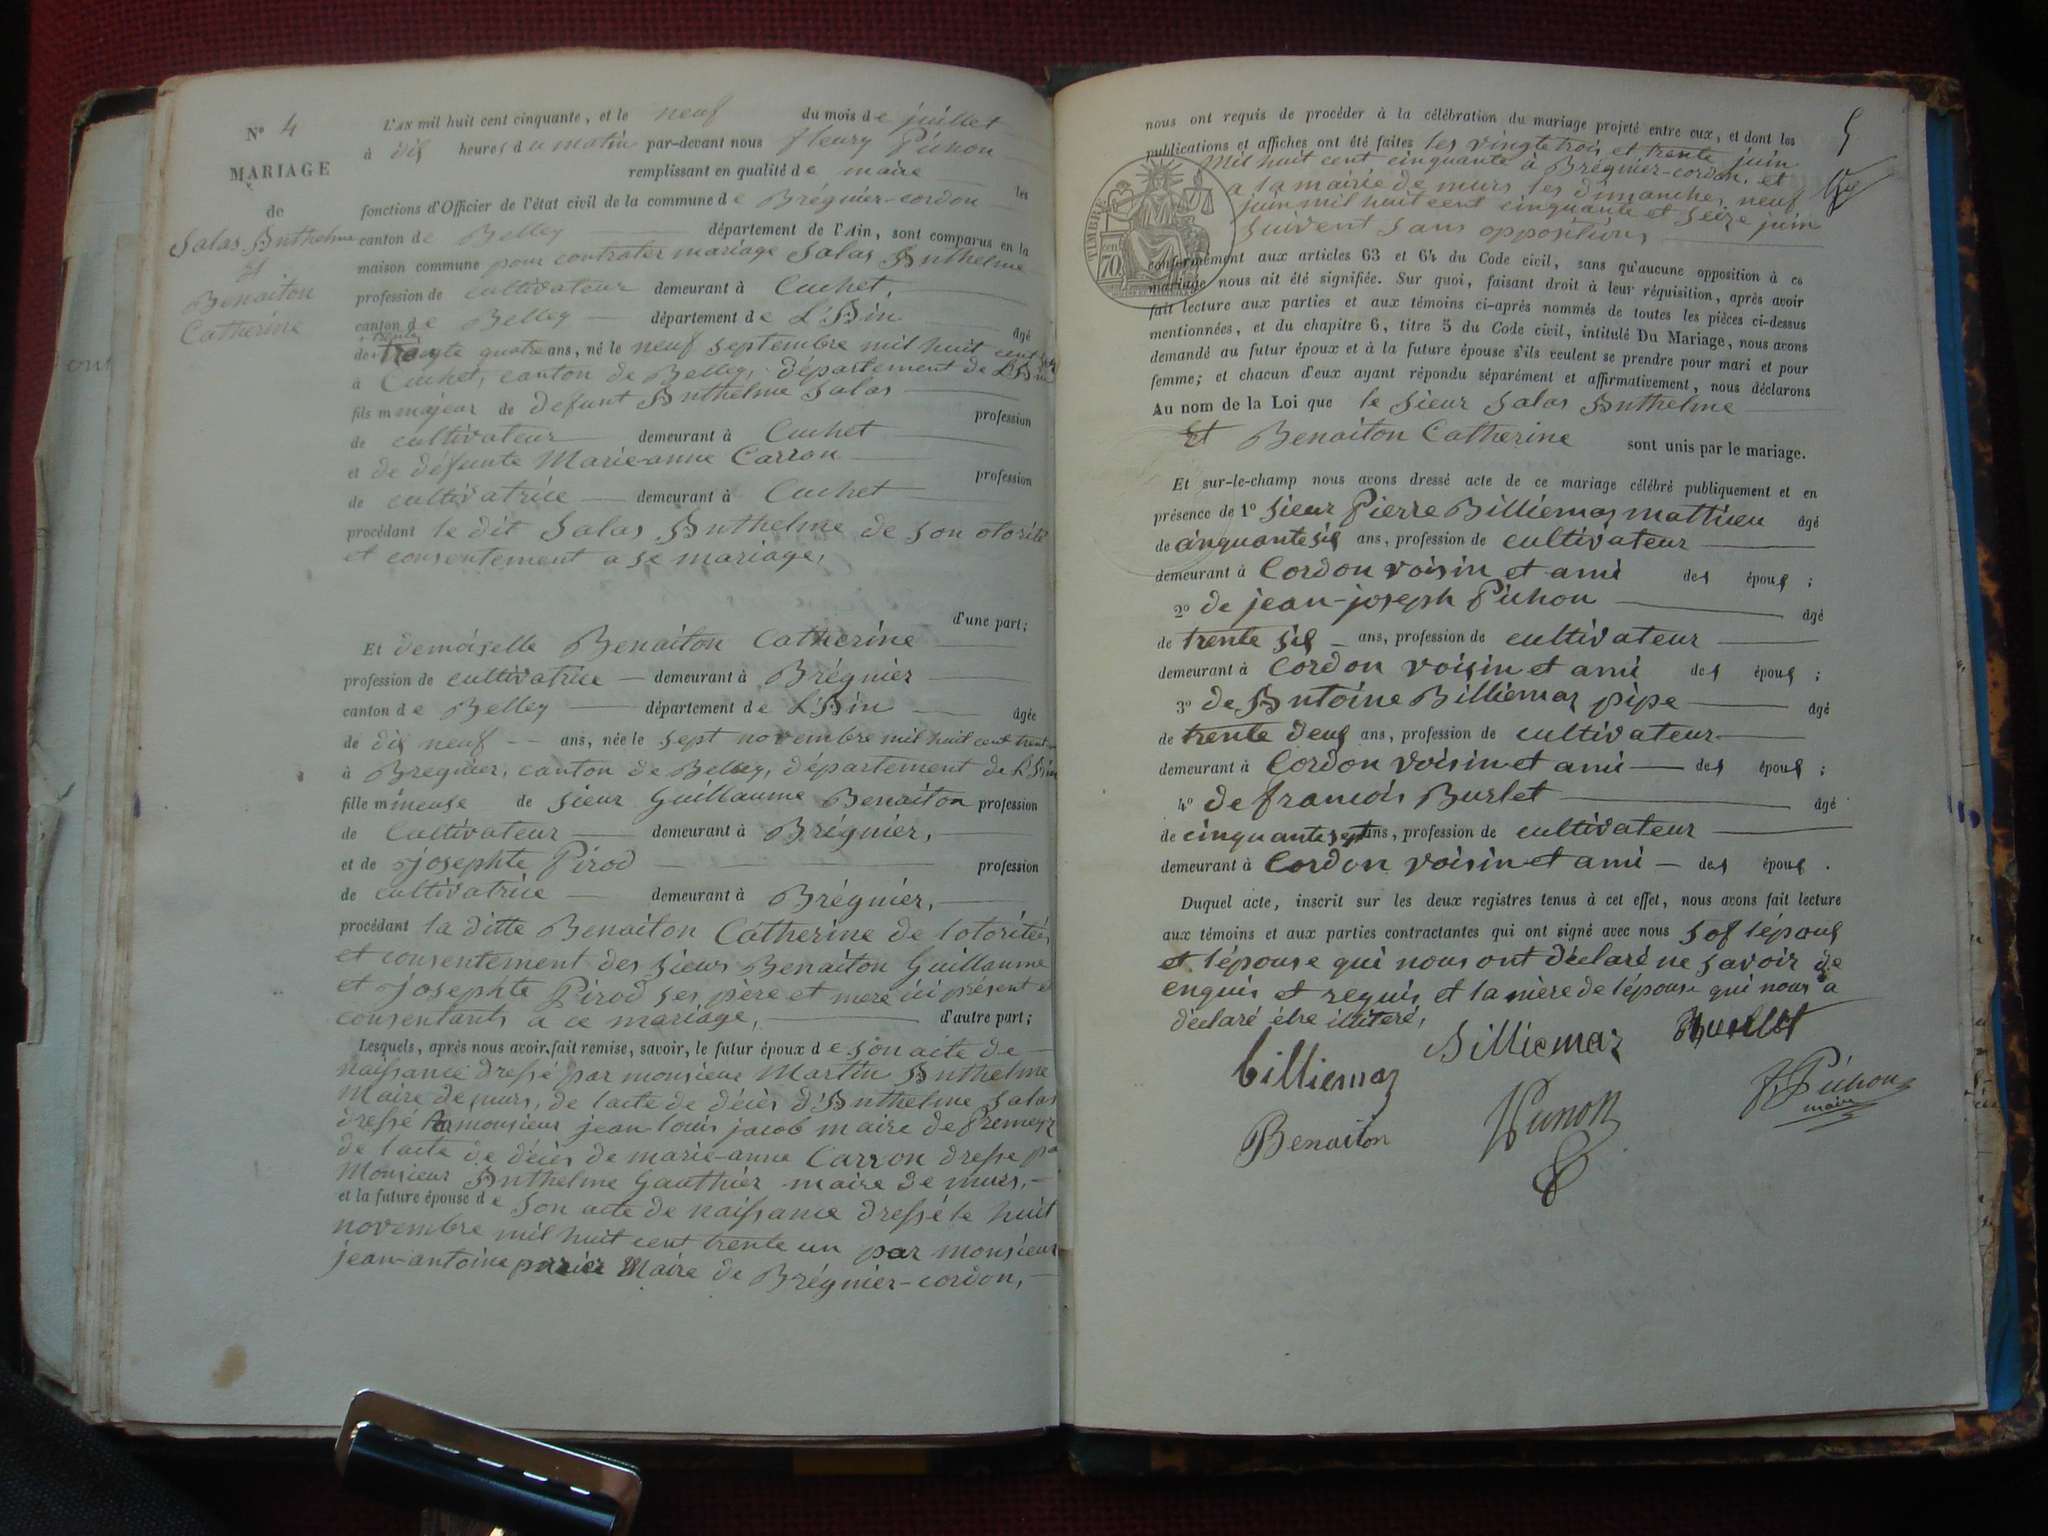 N° 4
MARIAGE
de
Salas Anthelme
et
Benaiton
Catherine
L'AN mil huit cent cinquante, et le neuf du mois de juillet
à dix heures du matin par-devant nous fleury Pichon
remplissant en qualité de maire les
fonctions d'Officier de l'état civil de la commune de Brégnier-cordon
canton de Belley département de l'Ain, sont comparus en la
maison commune pour contrater mariage Salas Anthelme
profession de cultivateur demeurant à Cuchet,
canton de Belley département de L'Ain âgé
de trente quatre ans, né le neuf septembre mil huit cent
à Cuchet, canton de Belley, département de L'Ain
fils majeur de defunt Anthelme Salas profession
de cultivateur demeurant à Cuchet
et de défunte Marie-anne Carron profession
de cultivatrice demeurant à Cuchet
procédant le dit Salas Anthelme de son otorité
et consentement a se mariage,
d'une part;
Et demoiselle Benaiton Catherine
profession de cultivatrice demeurant à Brégnier
canton de Belley département de L'Ain âgée
de dix neuf ans, née le sept novembre mil huit cent trente
à Bregnier, canton de Belley, département de L'Ain
fille mineuse de sieur Guillaume Benaiton profession
de Cultivateur demeurant à Brégnier,
et de Josephte Pirod profession
de cultivatrice demeurant à Brégnier,
procédant la ditte Benaiton Catherine de lotorités
et consentement des sieurs Benaiton Guillaume
et Josephte Pirod ses père et mere ici présent et
consentants a ce mariage, d'autre part;
Lesquels, après nous avoir fait remise, savoir, le futur époux de son acte de
naissance dressé par monsieur Martin Anthelme
Maire de murs, de lacte de décès d'Anthelme Salas
dressé par monsieur jean louis jacob maire de Premeyz
de lacte de décès de marie-anne Carron dresse par
Monsieur Anthelme Gauthier maire de murs,
et la future épouse de son acte de naissance dressé le huit
novembre mil huit cent trente un par monsieur
jean-antoine Maire de Brégnier-cordon,
5
nous ont requis de procéder à la célébration du mariage projeté entre eux, et dont les
publications et affiches ont été faites les vingt trois et trente juin
Mil huit cent cinquante à Brégnier-cordon, et
a la mairie de murs les dimanches neuf
juin mil huit cent cinquante et seize juin
suivent sans oppositions
TIMBRE
70 cent
conformément aux articles 63 et 64 du Code civil, sans qu'aucune opposition à ce
mariage nous ait été signifiée. Sur quoi, faisant droit à leur réquisition, après avoir
fait lecture aux parties et aux témoins ci-après nommés de toutes les pièces ci-dessus
mentionnées, et du chapitre 6, titre 5 du Code civil, intitulé Du Mariage, nous avons
demandé au futur époux et à la future épouse s'ils veulent se prendre pour mari et pour
femme; et chacun d'eux ayant répondu séparément et affirmativement, nous déclarons
Au nom de la Loi que le sieur Salas Anthelme
Et Benaiton Catherine sont unis par le mariage.
Et sur-le-champ nous avons dressé acte de ce mariage célébré publiquement et en
présence de 1° sieur Pierre Billiemaz mathieu âgé
de cinquante six ans, profession de cultivateur
demeurant à Cordon voisin et ami des époux;
2° de jean-joseph Pichon âgé
de trente six ans, profession de cultivateur
demeurant à Cordon voisin et ami des époux;
3° de Antoine Billiemaz pipe âgé
de trente deux ans, profession de cultivateur
demeurant à Cordon voisin et ami des époux;
4° de francois Burlet âgé
de cinquante sept ans, profession de cultivateur
demeurant à Cordon voisin et ami des époux.
Duquel acte, inscrit sur les deux registres tenus à cet effet, nous avons fait lecture
aux témoins et aux parties contractantes qui ont signé avec nous sof lépoux
et l'épouse qui nous ont déclaré ne savoir de
enquis et requis et la mère de l'épouse qui nous a
déclaré être illiteré,
billiemaz Billiemaz Burllet
Benaiton Pichon F. Pichon
maire